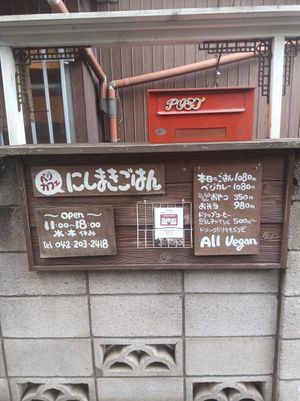 POST
ベジカフェ
にしまきごはん
~ open ~
11:00~18:00
水・木 休み
Tel 042-203-2448
本日のごはん 1080
ベジカレー 1080
おやつ 350
お弁当 980
ドリップコーヒー
500~
All Vegan